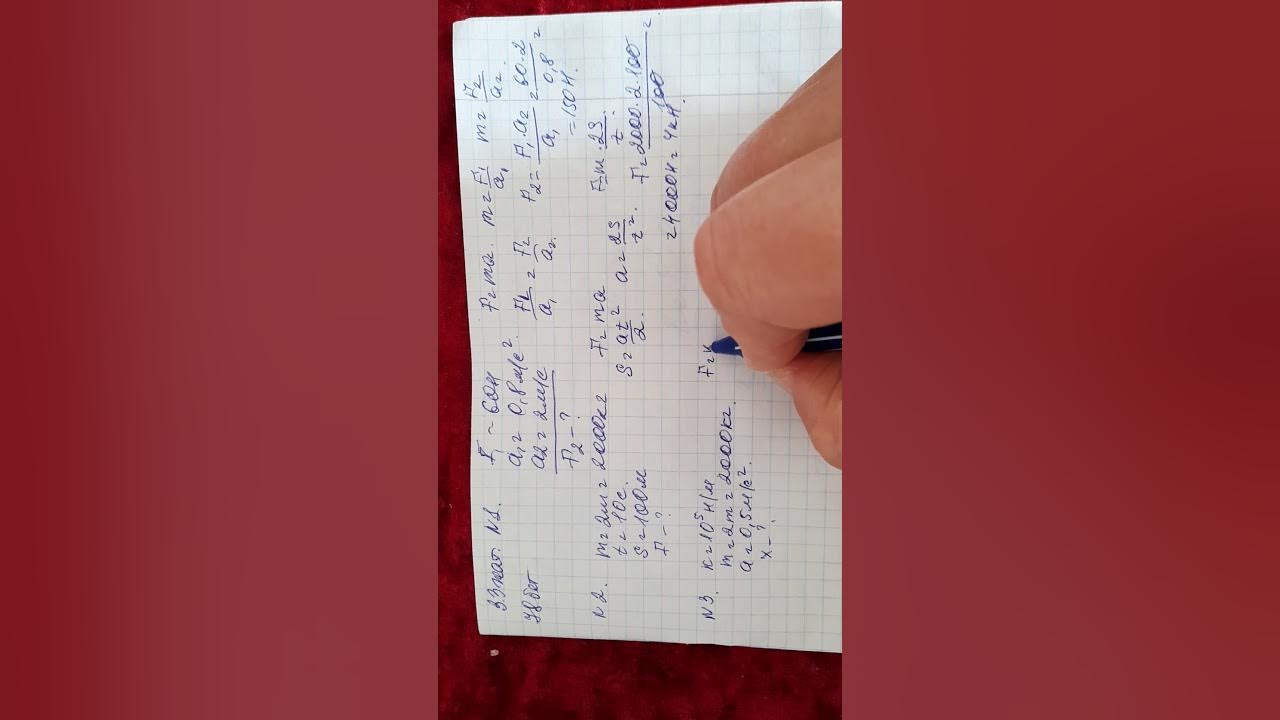 33 жат. N1.
78 бет
F₁ ~ 60H
a₁ = 0,8 м/с².
a₂ = 2 м/с
F₂ - ?
F = ma. m = F₁/a₁ m = F₂/a₂.
F₁/a₁ = F₂/a₂. F₂ = F₁·a₂/a₁ = 60·2/0,8 =
= 150 H.
N2. m = 2м = 2000 кг
t = 10c.
S = 100 м
F - ?
F = ma F = m · 2S/t.
S = at²/2. a = 2S/t². F = 2000·2·100/100 =
= 4000 H = 4 кН.
N3. к = 10⁵ Н/м
m = 2m = 2000 кг.
a = 0,5 м/с².
x - ?
F = к